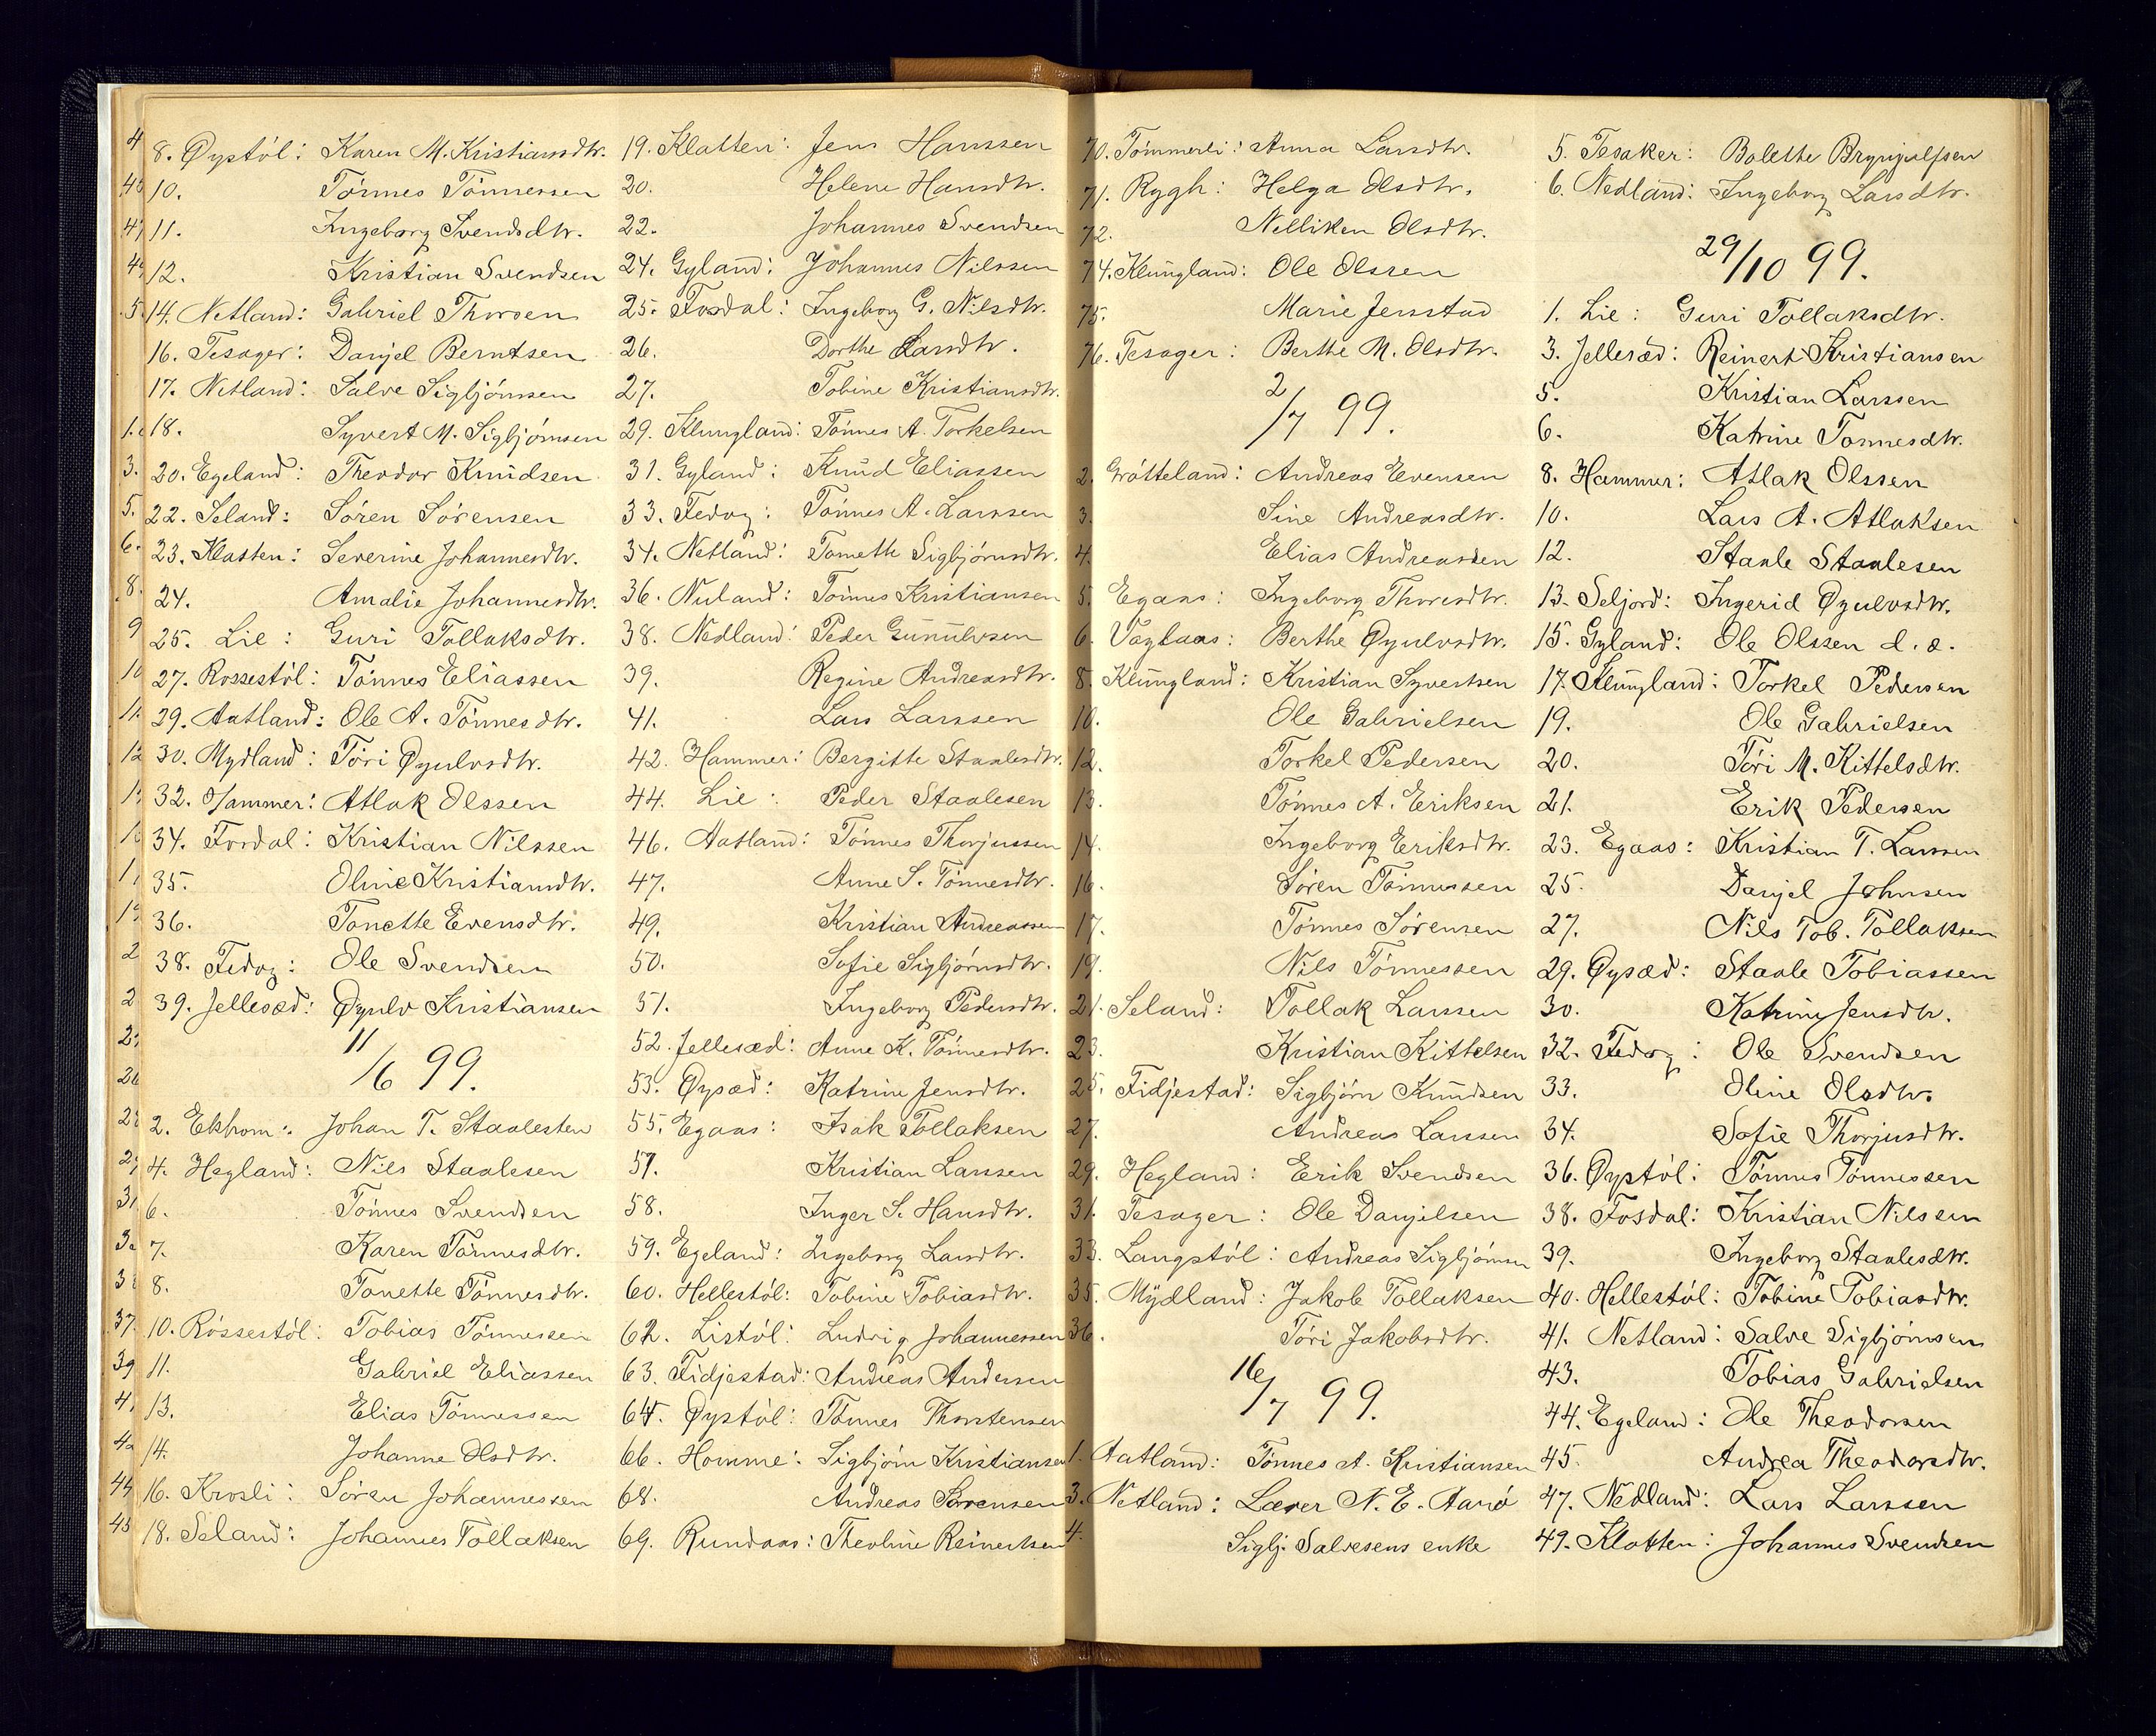 8. Øystøl: Karen M. Kristiansdtr.
10. Tønnes Tønnessen
11. Ingeborg Svendsdtr.
12. Kristian Svendsen
14. Netland: Gabriel Thorsen
16. Tesager: Danjel Berntsen
17. Netland: Salve Sigbjørnsen
18. Syvert M. Sigbjørnsen
20. Egeland: Theodor Knudsen
22. Seland: Søren Sørensen
23. Klatten: Severine Johannesdtr.
24. Amalie Johannesdtr.
25. Lie: Guri Tollaksdtr.
27. Rossestøl: Tønnes Eliassen
29. Aatland: Ole A. Tønnesdtr.
30. Mydland: Tøri Øyulvsdtr.
32. Hammer: Atlak Olssen
34. Fosdal: Kristian Nilssen
35. Oline Kristiansdtr.
36. Tonette Evensdtr.
38. Fedog: Ole Svendsen
39. Jellesæd: Øyulv Kristiansen
11/6 99.
2. Ekhom: Johan T. Staalesen
4. Hegland: Nils Staalesen
6. Tønnes Svendsen
7. Karen Tønnesdtr.
8. Tonette Tønnesdtr.
10. Røssestøl: Tobias Tønnessen
11. Gabriel Eliassen
13. Elias Tønnessen
14. Johanne Olsdtr.
16. Krosli: Søren Johannessen
18. Seland: Johannes Tollaksen
19. Klatten: Jens Hanssen
20. Helene Hansdtr.
22. Johannes Svendsen
24. Gyland: Johannes Nilssen
25. Fosdal: Ingeborg G. Nilsdtr.
26. Dorthe Larsdtr.
27. Tobine Kristiansdtr.
29. Klungland: Tønnes A. Torkelsen
31. Gyland: Knud Eliassen
33. Fedog: Tønnes A. Larssen
34. Netland: Tomette Sigbjørnsdtr.
36. Nuland: Tønnes Kristiansen
38. Nedland: Peder Gunulvsen
39. Regine Andreasdtr.
41. Lars Larssen
42. Hammer: Bergitte Staalesdtr.
44. Lie: Peder Staalesen
46. Aatland: Tønnes Thorjussen
47. Anne S. Tønnesdtr.
49. Kristian Andreassen
50. Sofie Sigbjørnsdtr.
51. Ingeborg Pedersdtr.
52. Jellesæd: Anne K. Tønnesdtr.
53. Øysæd: Katrine Jensdtr.
55. Egaas: Isak Tollaksen
57. Kristian Larssen
58. Inger S. Hansdtr.
59. Egeland: Ingeborg Larsdtr.
60. Hellestøl: Tobine Tobiasdtr.
62. Listøl: Ludvig Johannessen
63. Fidjestad: Andreas Andersen
64. Øystøl: Tønnes Thorstensen
66. Homme: Sigbjørn Kristiansen
68. Andreas Sørensen
69. Rundaas: Theoline Reinertsen
70. Tømmerli: Anna Larsdtr.
71. Rygh: Helga Olsdtr.
72. Nelliken Olsdtr.
74. Klungland: Ole Olssen
75. Marie Jensstad
76. Tesager: Berthe M. Olsdtr.
2/7 99.
2. Grøtteland: Andreas Evensen
3. Sine Andreasdtr.
4. Elias Andreassen
5. Egaas: Ingeborg Thoresdtr.
6. Vaglaas: Berthe Øyulvsdtr.
8. Klungland: Kristian Syvertsen
10. Ole Gabrielsen
12. Torkel Pedersen
13. Tønnes A. Eriksen
14. Ingeborg Eriksdtr.
16. Søren Tønnessen
17. Tønnes Sørensen
19. Nils Tønnessen
21. Seland: Tollak Larssen
23. Kristian Kittelsen
25. Fidjestad: Sigbjørn Knudsen
27. Andreas Larssen
29. Hegland: Erik Svendsen
31. Tesager: Ole Danjelsen
33. Langstøl: Andreas Sigbjørnsen
35. Mydland: Jakob Tollaksen
36. Tøri Jakobsdtr.
16/7 99.
1. Aatland: Tønnes A. Kristiansen
3. Netland: Lærer N. E. Aarrø
4. Sigbj. Salvesens enke
5. Tesaker: Bolette Brynjulfsen
6. Nedland: Ingeborg Larsdtr.
29/10 99.
1. Lie: Guri Tollaksdtr.
3. Jellesæd: Reinert Kristiansen
5. Kristian Larssen
6. Katrine Tønnesdtr.
8. Hammer: Atlak Olssen
10. Lars A. Atlaksen
12. Staale Staalesen
13. Seljord: Ingerid Øyulvsdtr.
15. Gyland: Ole Olssen d. æ.
17. Klungland: Torkel Pedersen
19. Ole Gabrielsen
20. Tøri M. Kittelsdtr.
21. Erik Pedersen
23. Egaas: Kristian T. Larssen
25. Danjel Johnsen
27. Nils Tob. Tollaksen
29. Øysæd: Staale Tobiassen
30. Katrine Jensdtr.
32. Fedog: Ole Svendsen
33. Oline Olsdtr.
34. Sofie Thorjusdtr.
36. Øystøl: Tønnes Tønnessen
38. Fosdal: Kristian Nilssen
39. Ingeborg Staalesdtr.
40. Hellestøl: Tobine Tobiasdtr.
41. Netland: Salve Sigbjørnsen
43. Tobias Gabrielsen
44. Egeland: Ole Theodorsen
45. Andrea Theodorsdtr.
47. Nedland: Lars Larssen
49. Klatten: Johannes Svendsen